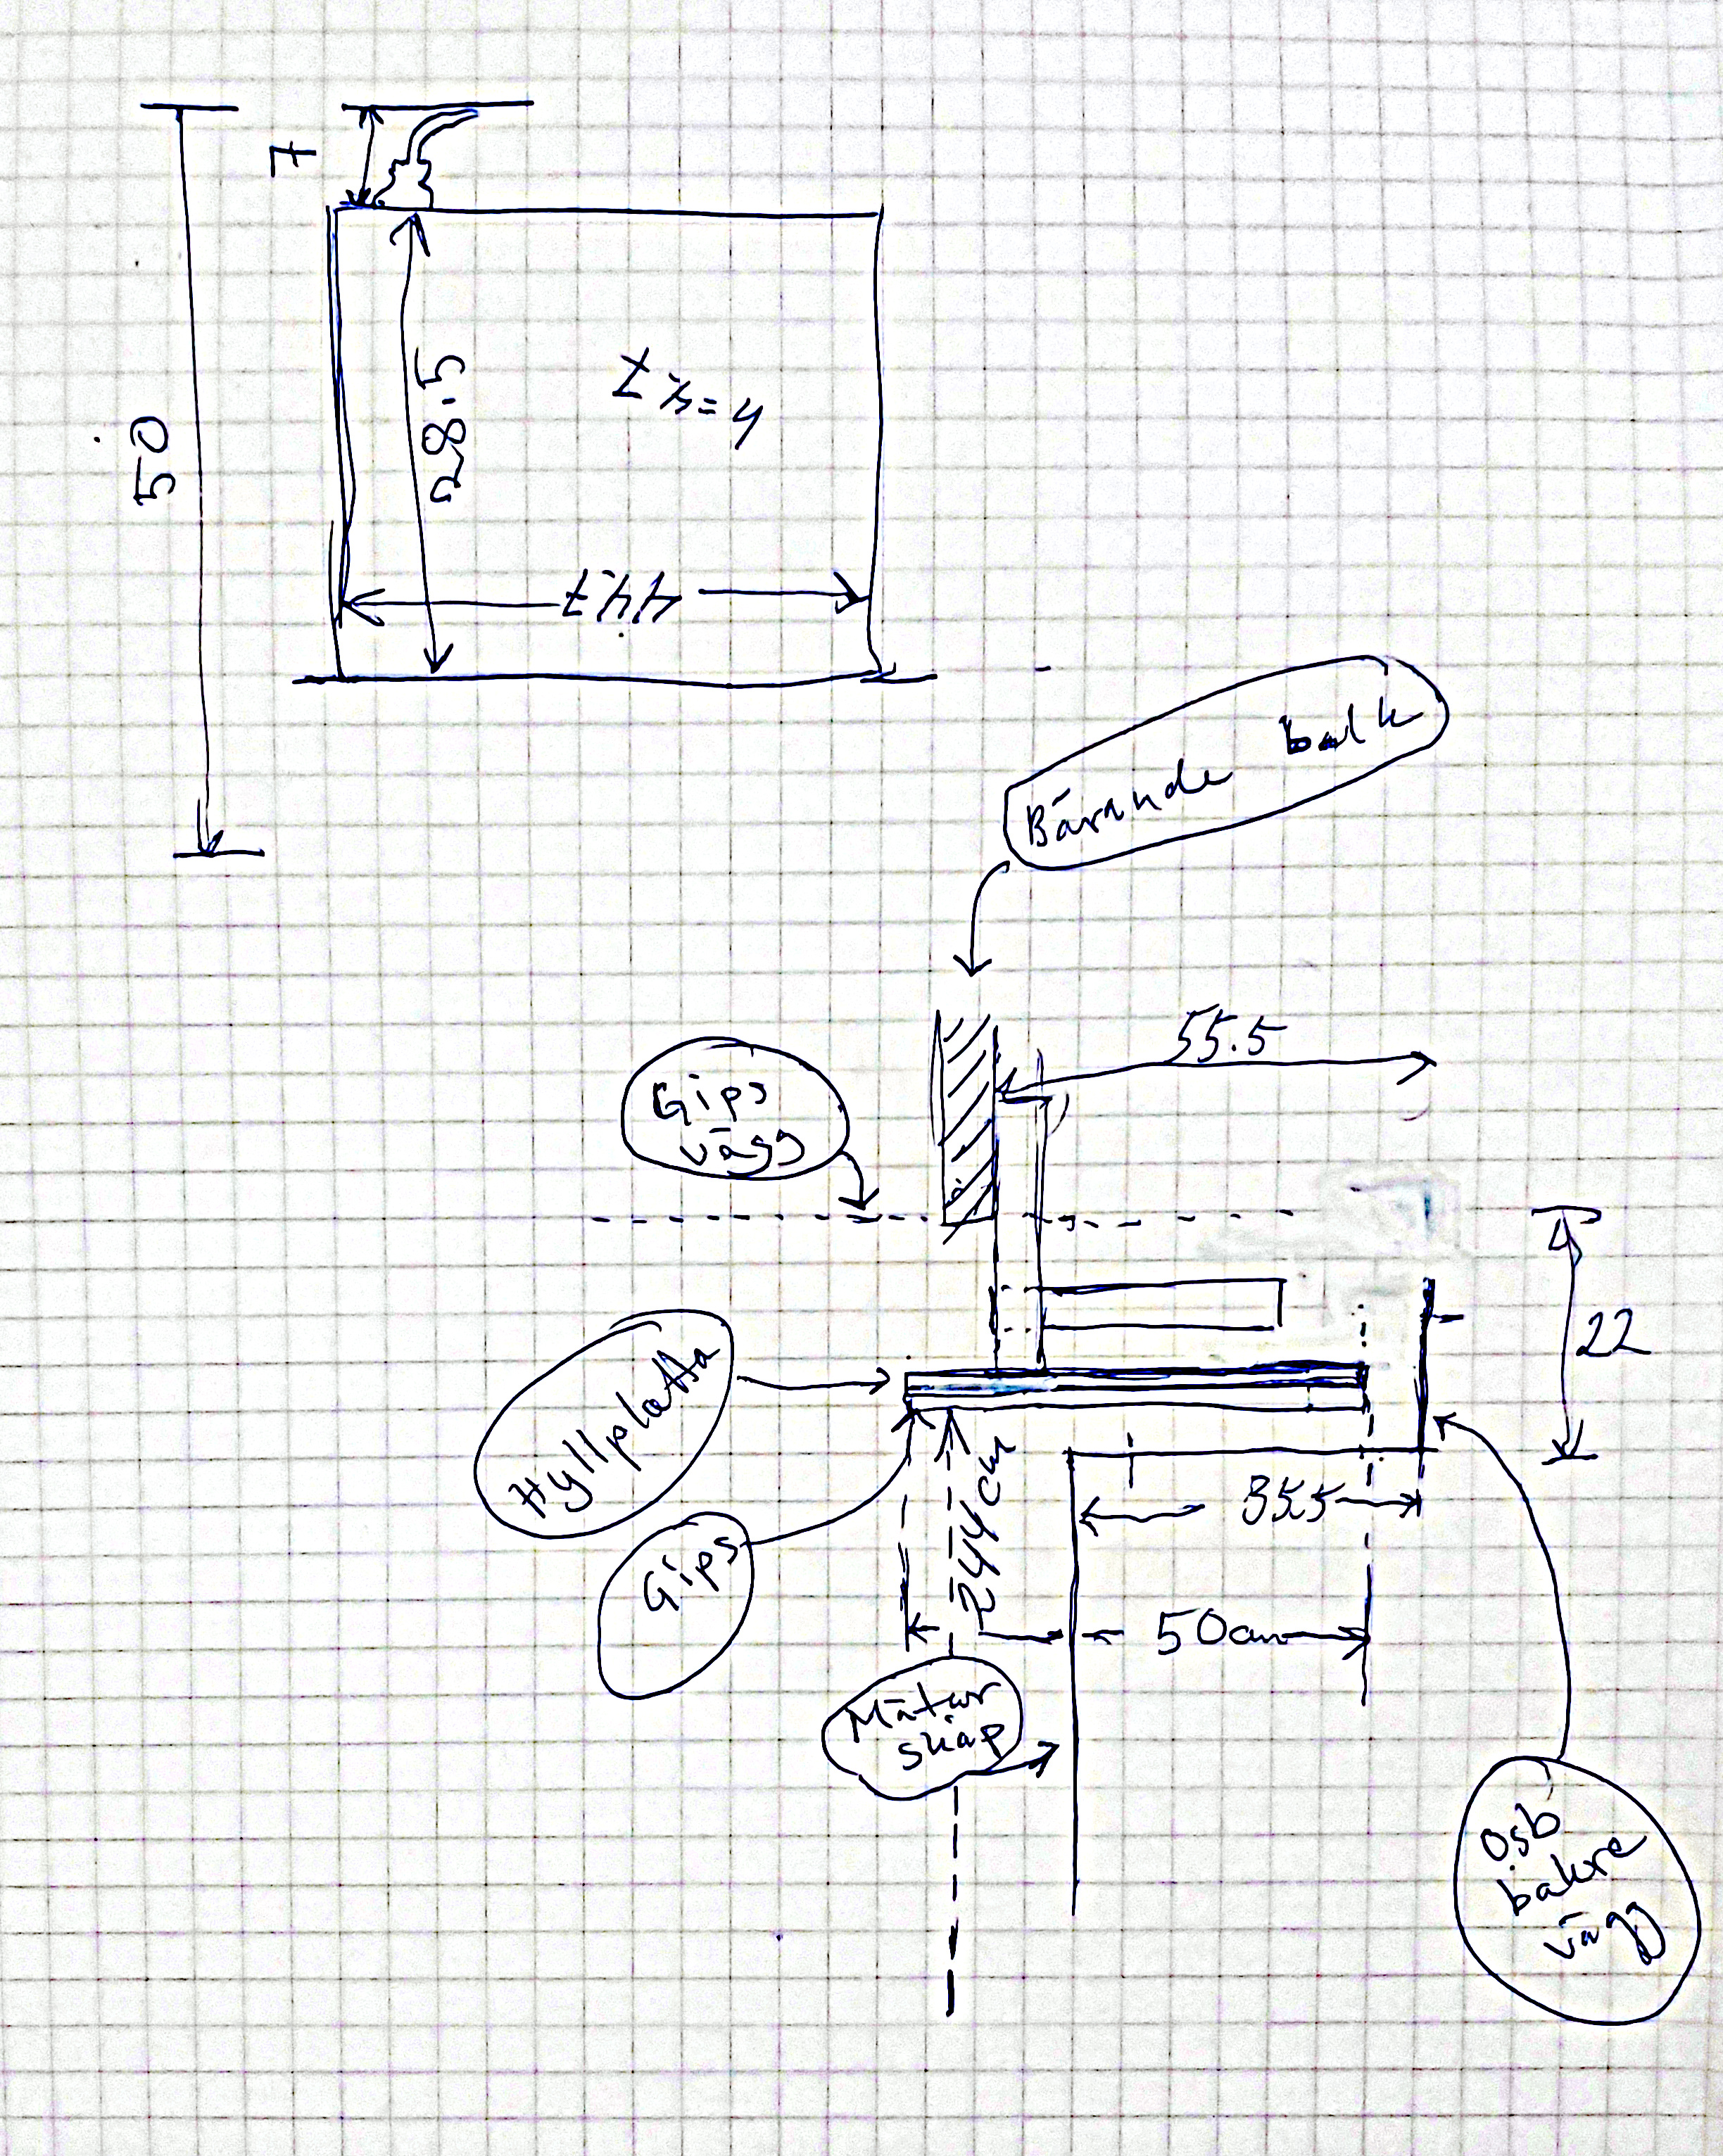 7
50
28.5
h=4,7
44,7
Bärande balk
55.5
Gips
vägg
22
Hyllplatta
244cm
35.5
Gips
50cm
Mätar
skåp
Osb
bakre
vägg